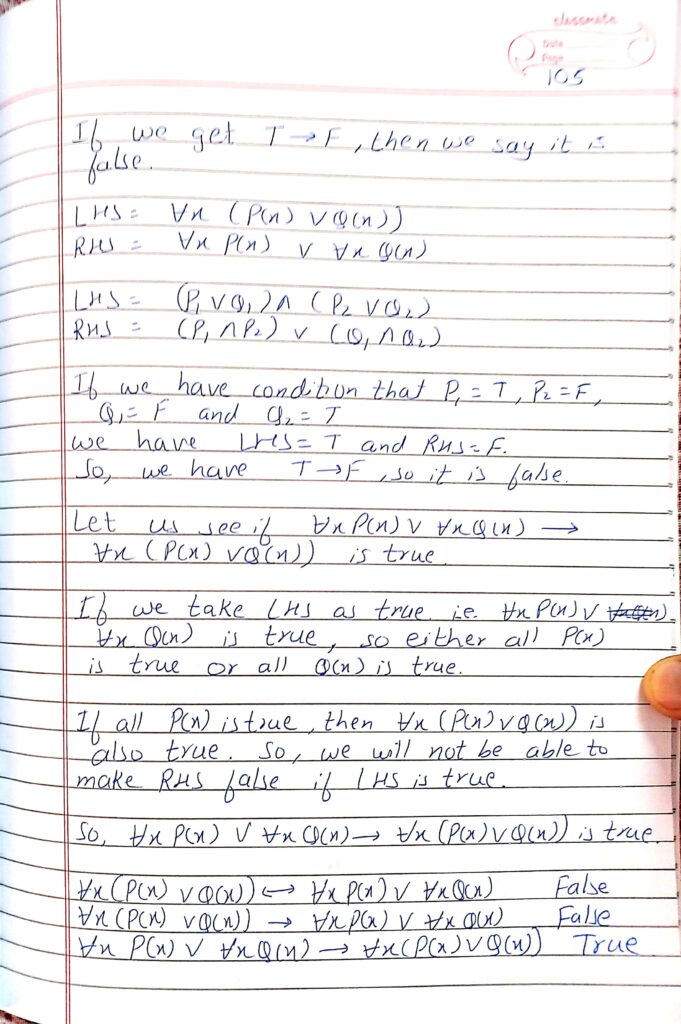 classmate
Date
Page
105
If we get T → F, then we say it is
false.
LHS = ∀x (P(x) ∨ Q(x))
RHS = ∀x P(x) ∨ ∀x Q(x)
LHS = (P₁ ∨ Q₁) ∧ (P₂ ∨ Q₂)
RHS = (P₁ ∧ P₂) ∨ (Q₁ ∧ Q₂)
If we have condition that P₁ = T, P₂ = F,
Q₁ = F and Q₂ = T
we have LHS = T and RHS = F.
So, we have T → F, so it is false.
Let us see if ∀x P(x) ∨ ∀x Q(x) →
∀x (P(x) ∨ Q(x)) is true
If we take LHS as true i.e. ∀x P(x) ∨
∀x Q(x) is true, so either all P(x)
is true or all Q(x) is true.
If all P(x) is true, then ∀x (P(x) ∨ Q(x)) is
also true. So, we will not be able to
make RHS false if LHS is true.
So, ∀x P(x) ∨ ∀x Q(x) → ∀x (P(x) ∨ Q(x)) is true.
∀x (P(x) ∨ Q(x)) ↔ ∀x P(x) ∨ ∀x Q(x) False
∀x (P(x) ∨ Q(x)) → ∀x P(x) ∨ ∀x Q(x) False
∀x P(x) ∨ ∀x Q(x) → ∀x (P(x) ∨ Q(x)) True